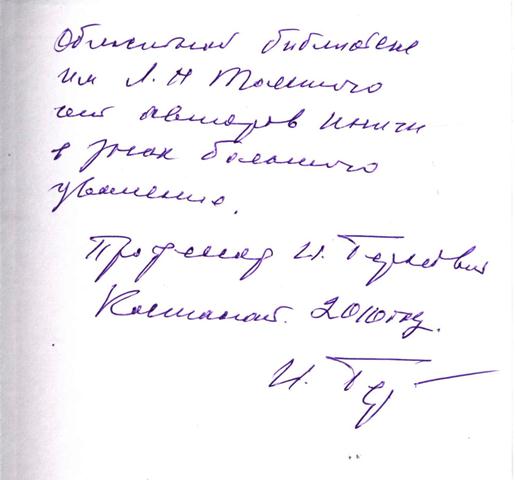 Областной библиотеке
им Л. Н Толстого
от авторов книги
в знак большого
уважения.
Профессор И.
Костанай. 2010 год.
И.